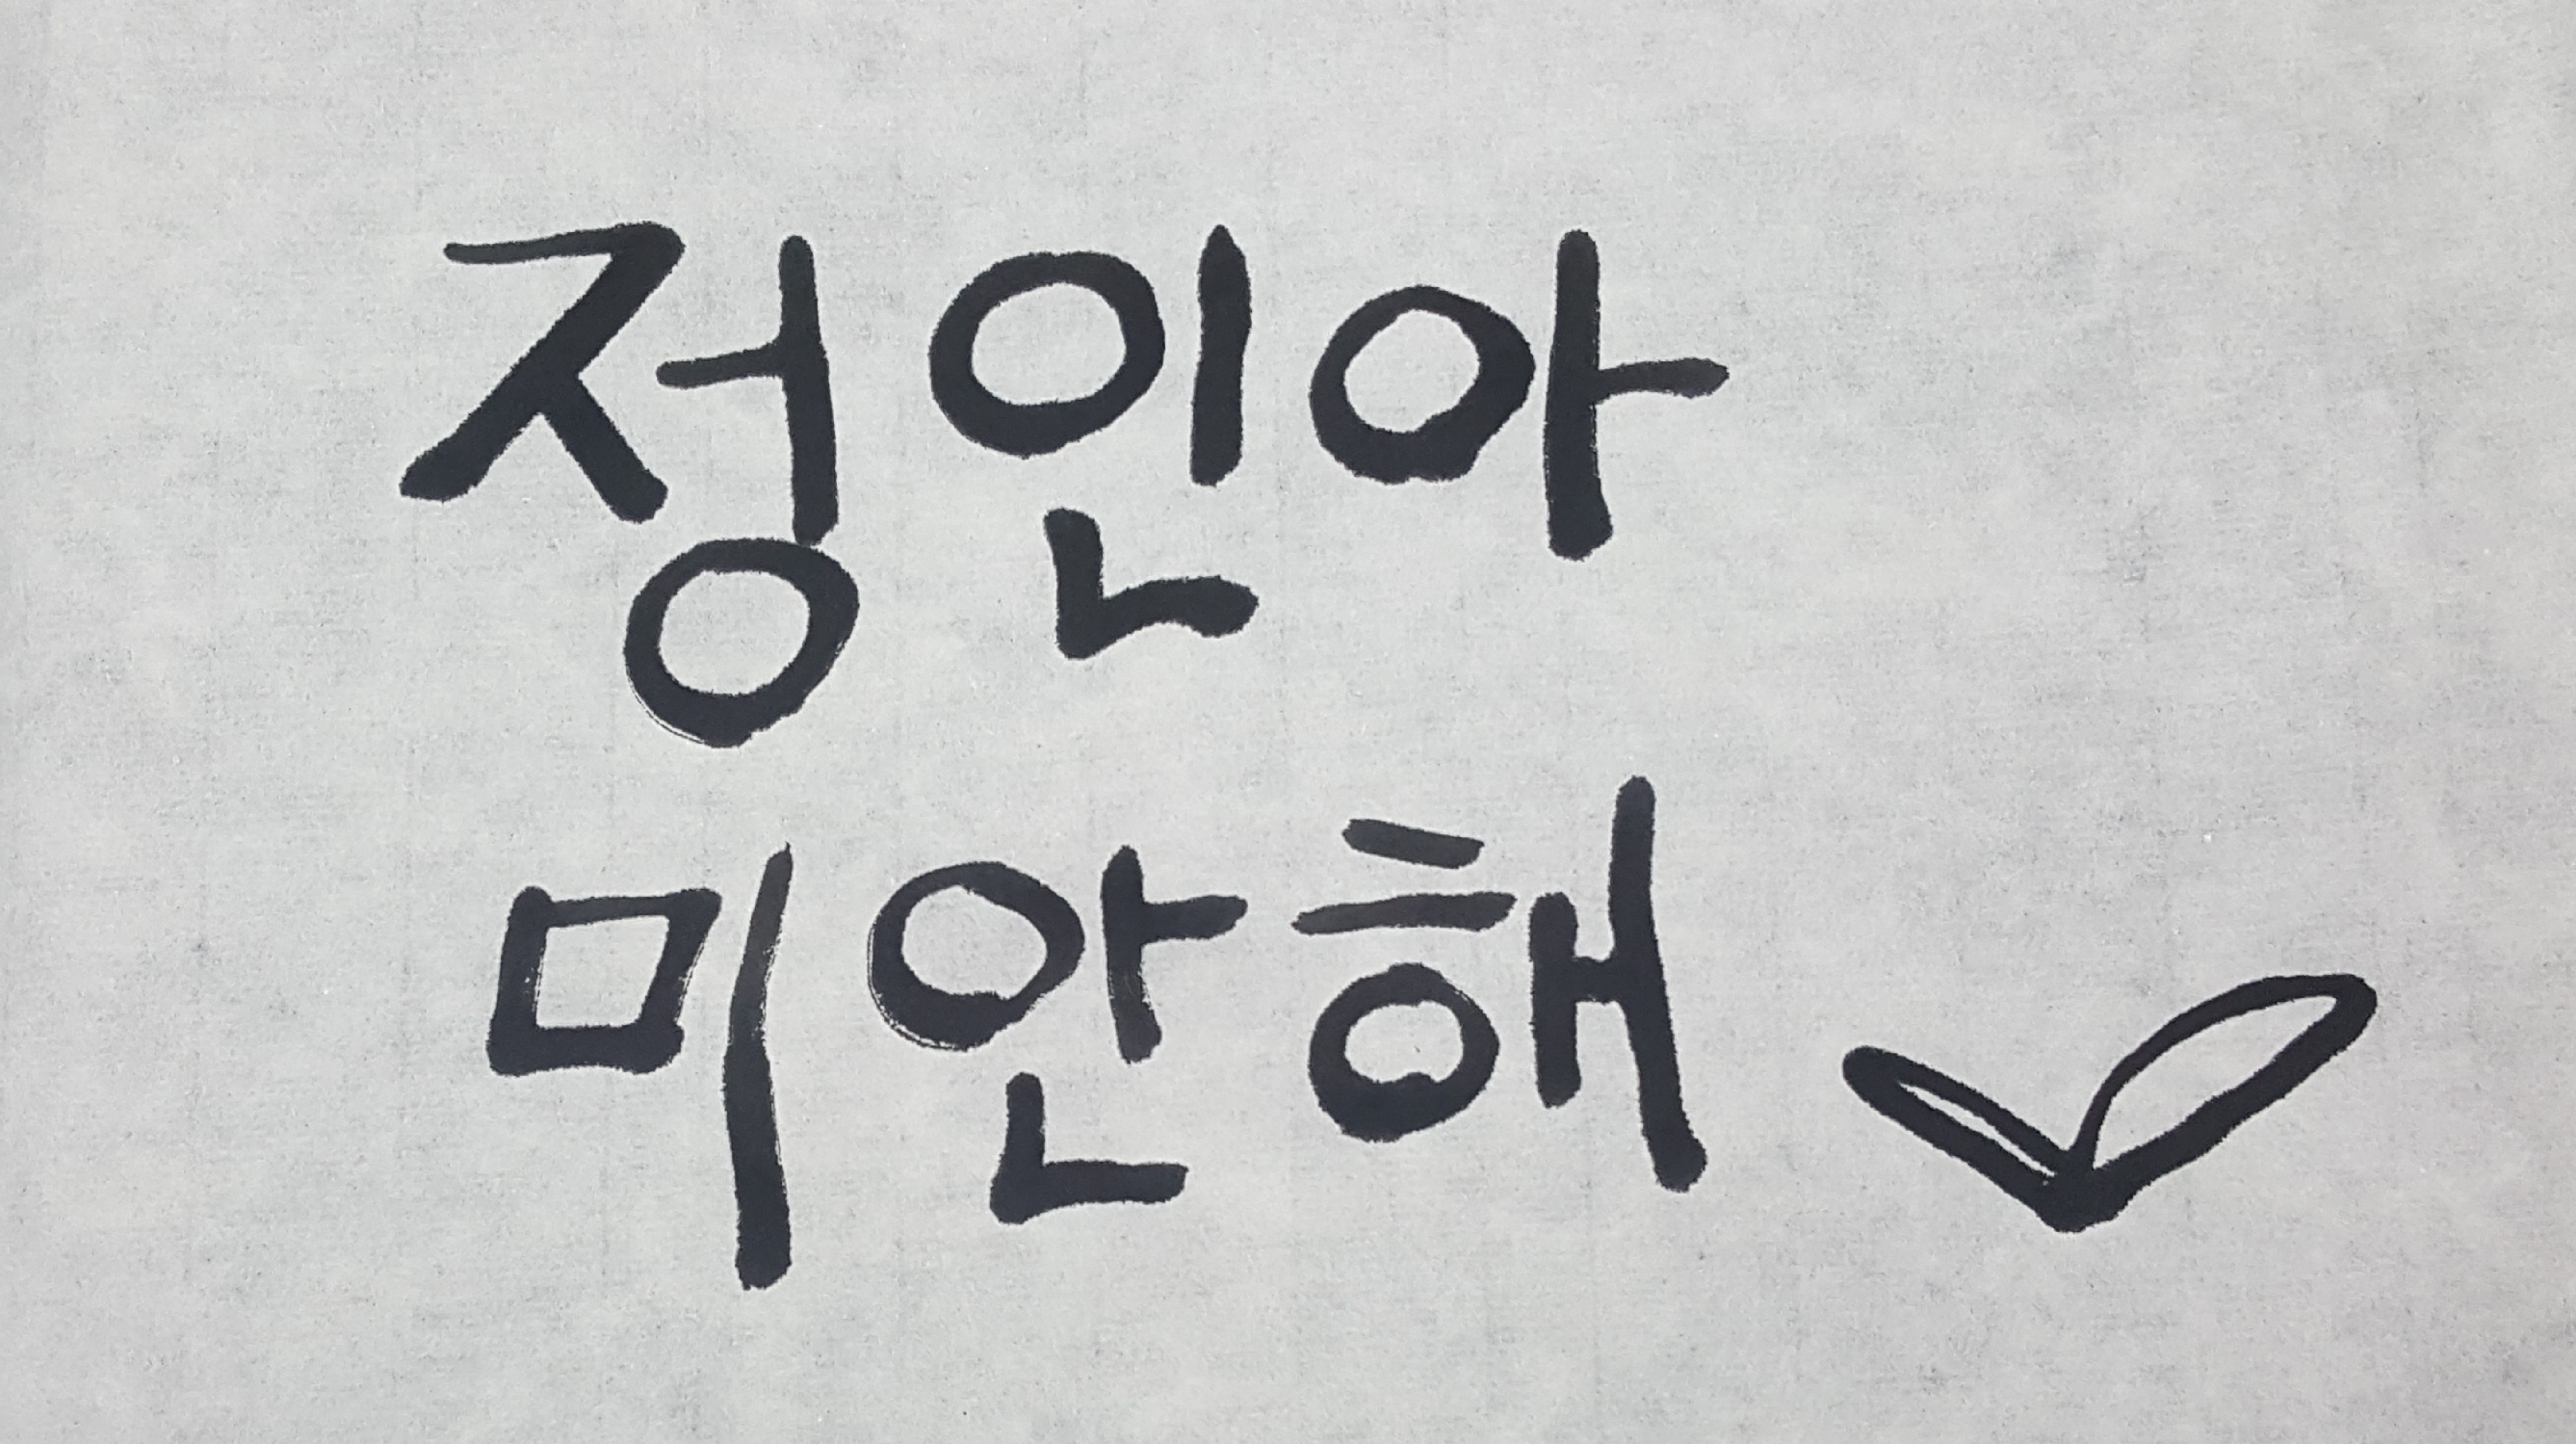 정인아
미안해